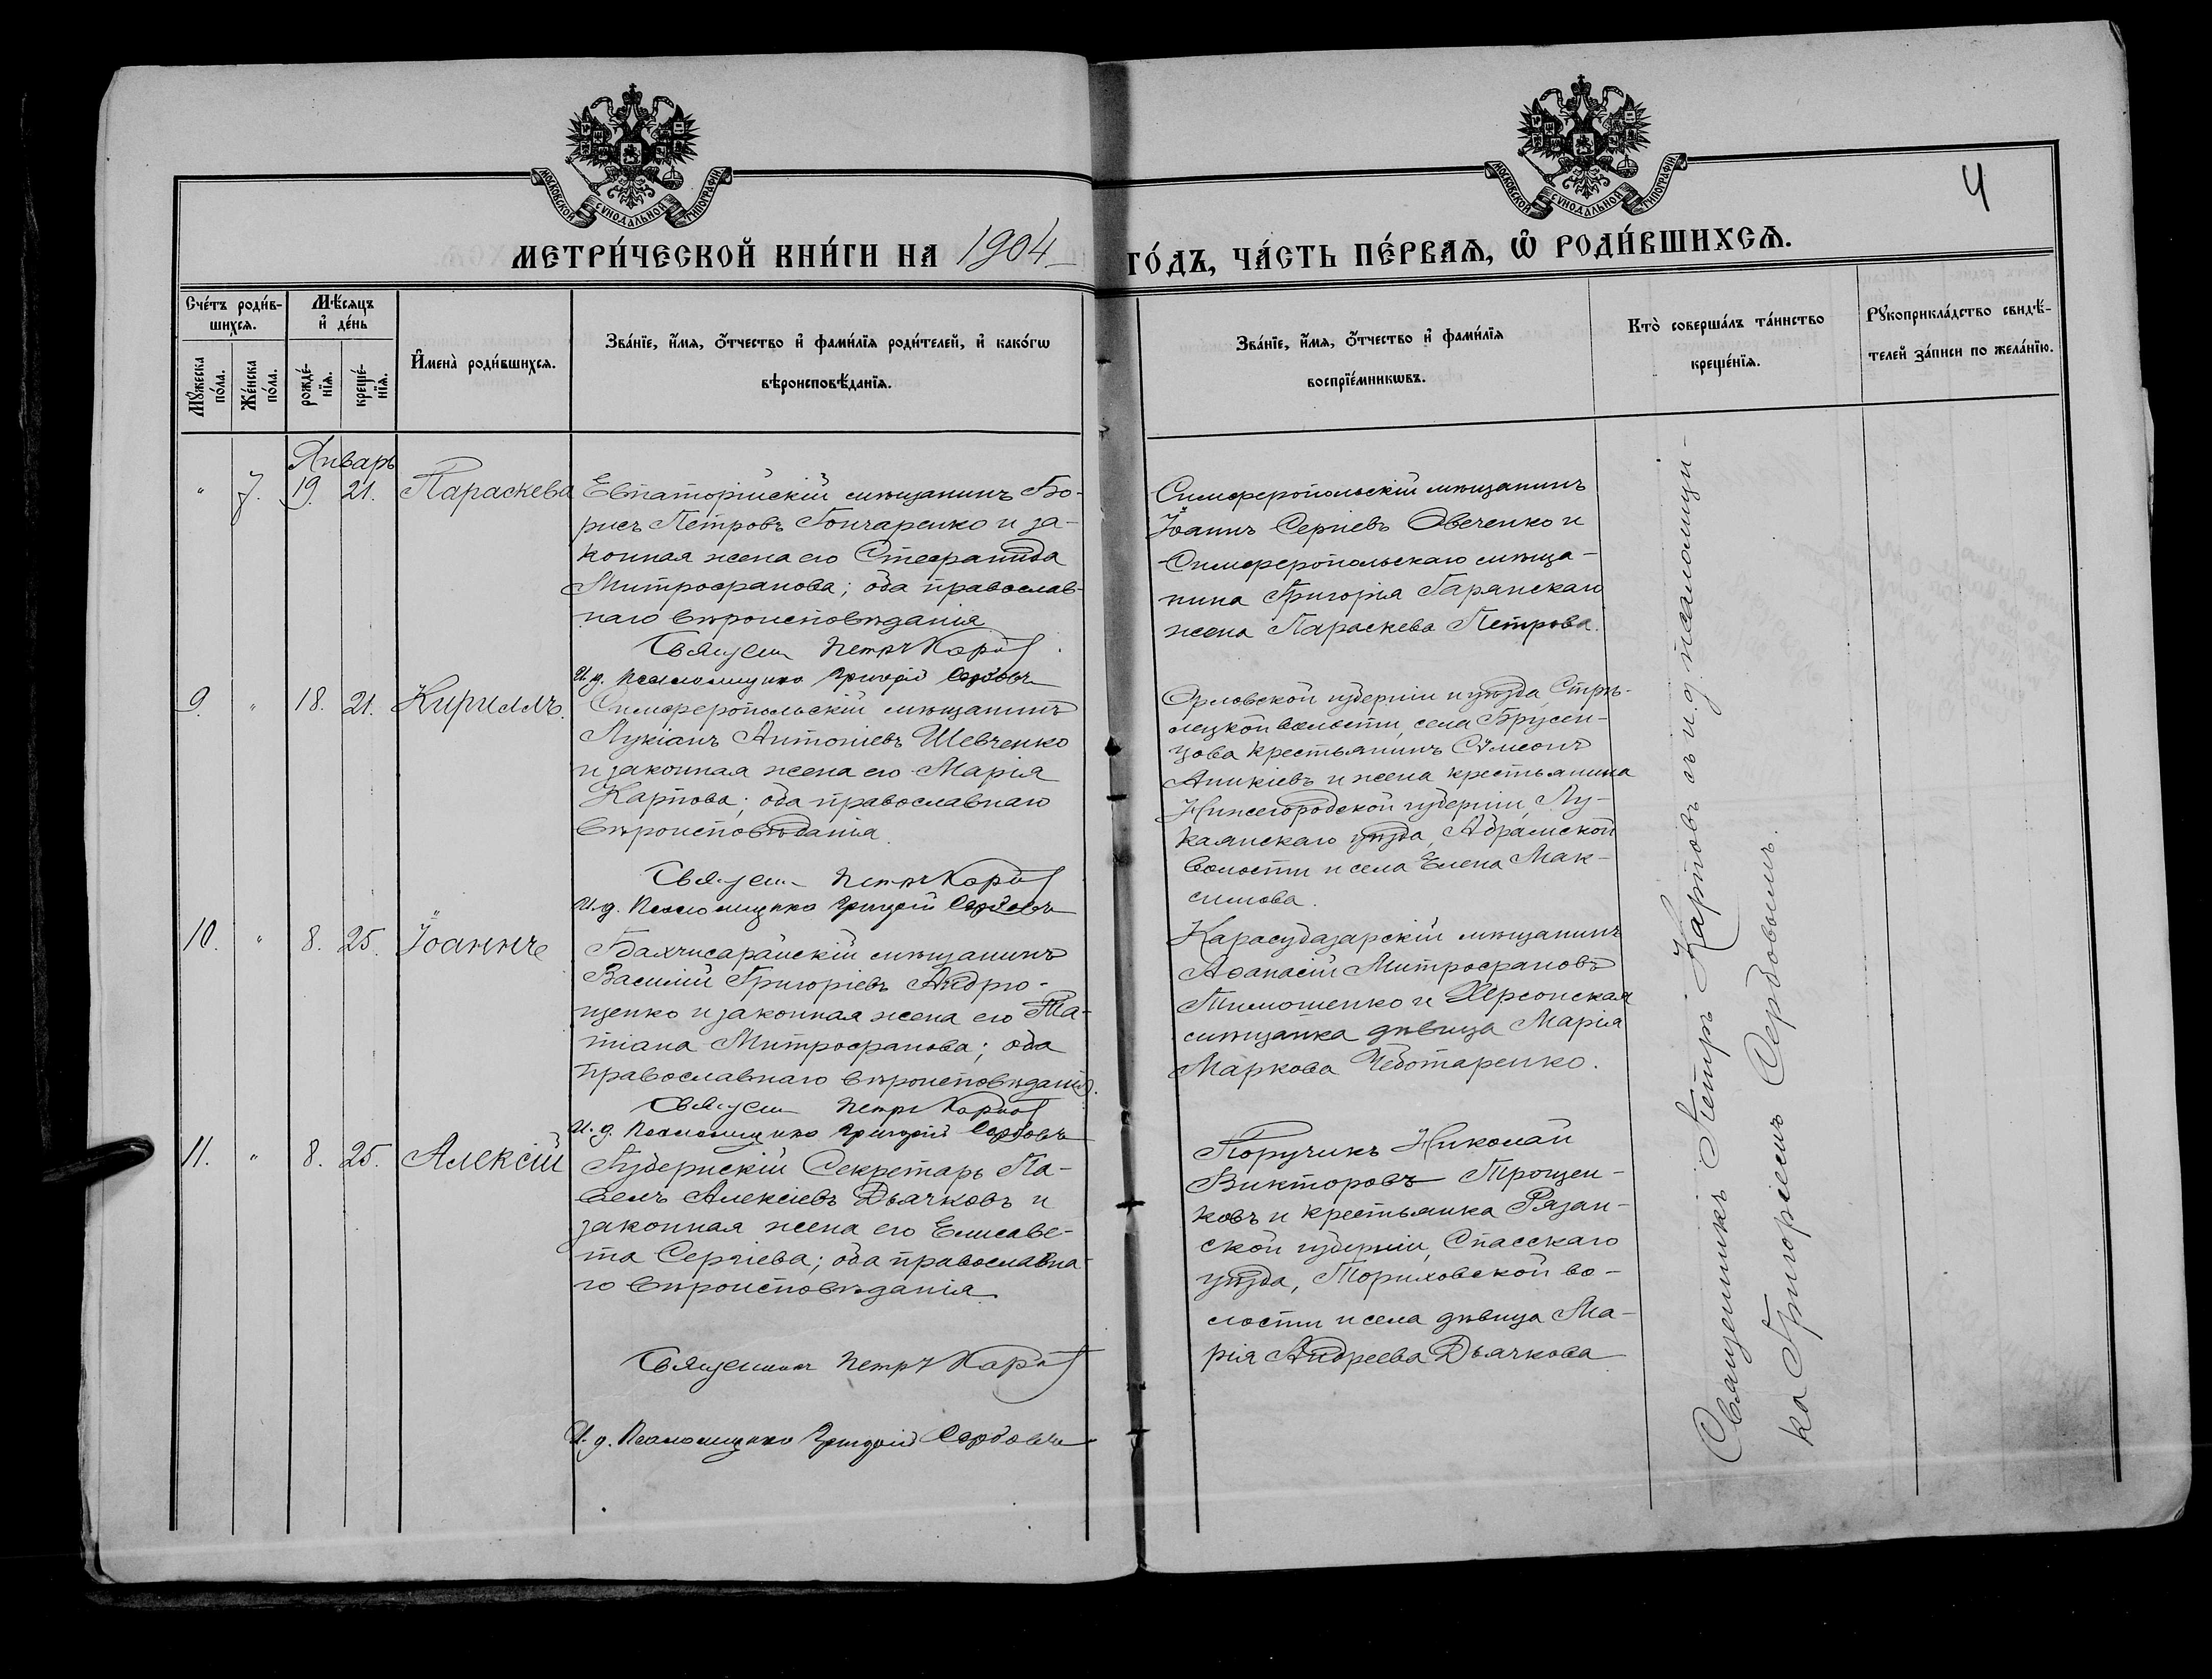 МОСКОВСКОЙ СУНОДАЛЬНОЙ ТИПОГРАФІИ
МОСКОВСКОЙ СУНОДАЛЬНОЙ ТИПОГРАФІИ
4
МЕТРИ́ЧЕСКОЙ КНИ́ГИ НА 1904 ГО́ДЪ, ЧА́СТЬ ПЕ́РВАѦ, Ѿ РОДИ́ВШИХСѦ.
Сче́тъ роди́в-
шихсѧ.
Мꙋжеска по́ла.
Же́нска по́ла.
Мѣ́сѧцъ
и҆ де́нь
рожде́-
нїѧ.
креще́-
нїѧ.
И҆мена̀ роди́вшихсѧ.
Зва́нїе, и҆́мѧ, ѻ҆́тчество и҆ фами́лїѧ роди́телей, и҆ како́гѡ
вѣроисповѣ́данїѧ.
Зва́нїе, и҆́мѧ, ѻ҆́тчество и҆ фами́лїѧ
воспрїе́мникѡвъ.
Кто̀ соверша́лъ та́инство
креще́нїѧ.
Рꙋкоприкла́дство свидѣ́-
телей за́писи по жела́нїю.
Январь
" 7. 19. 21. Параскева
Евпаторійскій мѣщанинъ Бо-
рисъ Петровъ Гончаренко и за-
конная жена его Стефанида
Митрофанова; оба православ-
наго вѣроисповѣданія
Священ Петръ Карпов
И.д. Псаломщика Григорій Сербовъ
Симферопольскій мѣщанинъ
Іоаннъ Сергіевъ Овеченко и
Симферопольскаго мѣща-
нина Григорія Гаранскаго
жена Параскева Петрова.
9. " 18. 21. Кириллъ.
Симферопольскій мѣщанинъ
Лукіанъ Антоніевъ Шевченко
и законная жена его Марія
Карпова; оба православнаго
вѣроисповѣданія.
Священ Петръ Карпов
И.д. Псаломщика Григорій Сербовъ
Орловской губерніи и уѣзда, Стрѣ-
лецкой волости, села Брусен-
цова крестьянинъ Сѵмеонъ
Аникіевъ и жена крестьянина
Нижегородской губерніи, Лу-
каянскаго уѣзда, Абрамской
волости и села Елена Мак-
симова.
10. " 8. 25. Іоаннъ
Бахчисарайскій мѣщанинъ
Василій Григоріевъ Андрю-
щенко и законная жена его Та-
тіана Митрофанова; оба
православнаго вѣроисповѣданія.
Священ Петръ Карпов
И.д. Псаломщика Григорій Сербовъ
Карасубазарскій мѣщанинъ
Аѳанасій Митрофановъ
Тимошенко и Херсонская
мѣщанка дѣвица Марія
Маркова Чеботаренко.
11. " 8. 25. Алексій
Губернскій Секретарь Па-
велъ Алексіевъ Дьячковъ и
законная жена его Елисаве-
та Сергіева; оба православна-
го вѣроисповѣданія.
Священникъ Петръ Карпов
И.д. Псаломщика Григорій Сербовъ
Поручикъ Николай
Викторовъ Трощен-
ковъ и крестьянка Рязан-
ской губерніи, Спасскаго
уѣзда, Ториховской во-
лости и села дѣвица Ма-
рія Андреева Дьячкова
Священникъ Петръ Карповъ съ и.д. псаломщи-
ка Григоріемъ Сербовымъ.